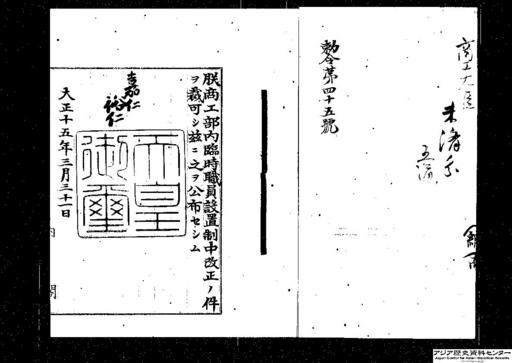 商工大臣
勅令第四十五號
朕商工部內臨時職員設置制中改正ノ件
ヲ裁可シ玆ニ之ヲ公布セシム
嘉仁
裕仁
天皇御璽
大正十五年三月三十一日
內閣
アジア歴史資料センター
Japan Center for Asian Historical Records